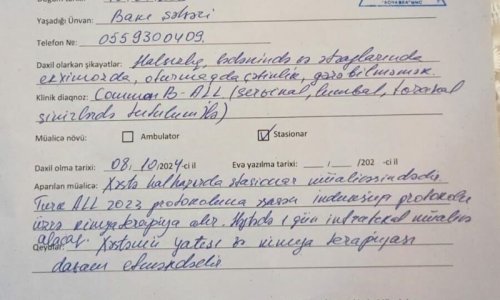 Yaşadığı Ünvan: Bakı şəhəri
Telefon №: 0559300409
Daxil olarkan şikayətlər: Halsızlıq, bədənində və ətraflarında
ekximozda, oturmaqda çətinlik, gəzə bilməmək.
Klinik diaqnoz: Common B-ALL (servikal, lumbal, torakal
sinirlərdə tutulum ilə)
Müalicə növü: Ambulator Stasionar
Daxil olma tarixi: 08. 10. 2024-ci il Evə yazılma tarixi: ___/___/202 -ci il
Aparılan müalicə: Xəstə hal hazırda stasionar müalicəsindədir
Turk ALL 2023 protokoluna əsasən induksiya protokolu
üzrə kimyaterapiya alır. Həftədə 1 gün intratekal müalicə
alacaq.
Qeydlər: Xəstənin yatışı və kimya terapiyası
davam etməkdədir